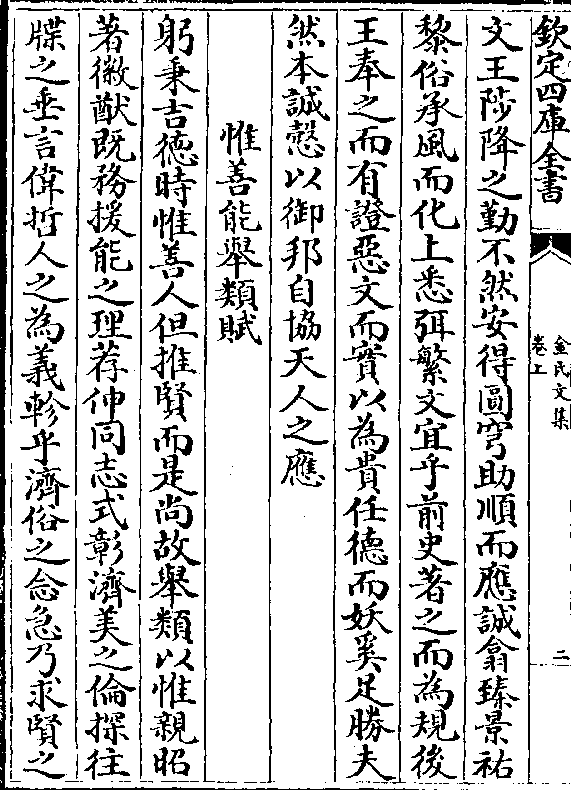 欽定四庫全書
金氏文集
卷上
二
文王陟降之勤不然安得圓穹助順而應誠翕臻景祐
黎俗承風而化上悉弭繁文宜乎前史著之而為規後
王奉之而有證惡文而實以為貴任德而妖奚足勝夫
然本誠慤以御邦自協天人之應
惟善能舉類賦
躬秉吉德時惟善人但推賢而是尚故舉類以惟親昭
著徽猷既務援能之理荐伸同志式彰濟美之倫探往
牒之垂言偉哲人之為義軫乎濟俗之念急乃求賢之